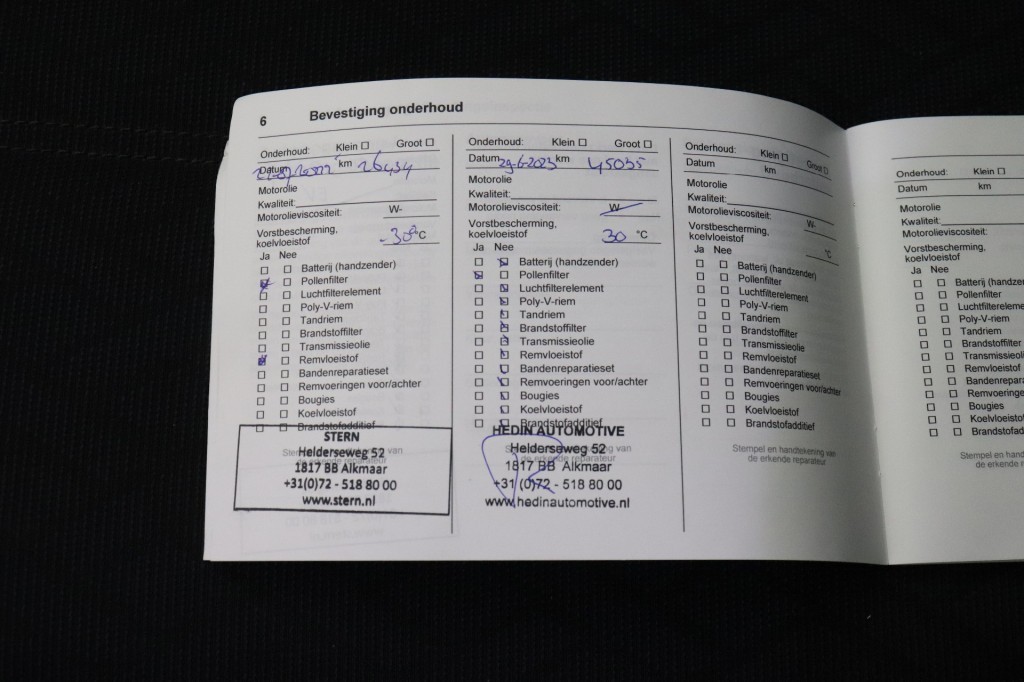 6 Bevestiging onderhoud
Onderhoud: Klein ☐ Groot ☐
Datum km 26434
Motorolie
Kwaliteit:
Motorolieviscositeit: W-
Vorstbescherming,
koelvloeistof -30 °C
Ja Nee
Batterij (handzender)
Pollenfilter
Luchtfilterelement
Poly-V-riem
Tandriem
Brandstoffilter
Transmissieolie
Remvloeistof
Bandenreparatieset
Remvoeringen voor/achter
Bougies
Koelvloeistof
Brandstofadditief
STERN
Helderseweg 52
1817 BB Alkmaar
+31(0)72 - 518 80 00
www.stern.nl
Onderhoud: Klein ☐ Groot ☐
Datum 29-6-2023 km 45035
Motorolie
Kwaliteit:
Motorolieviscositeit: W-
Vorstbescherming,
koelvloeistof 30 °C
Ja Nee
Batterij (handzender)
Pollenfilter
Luchtfilterelement
Poly-V-riem
Tandriem
Brandstoffilter
Transmissieolie
Remvloeistof
Bandenreparatieset
Remvoeringen voor/achter
Bougies
Koelvloeistof
Brandstofadditief
HEDIN AUTOMOTIVE
Helderseweg 52
1817 BB Alkmaar
+31 (0)72 - 518 80 00
www.hedinautomotive.nl
Onderhoud: Klein ☐ Groot ☐
Datum km
Motorolie
Kwaliteit:
Motorolieviscositeit: W-
Vorstbescherming,
koelvloeistof °C
Ja Nee
Batterij (handzender)
Pollenfilter
Luchtfilterelement
Poly-V-riem
Tandriem
Brandstoffilter
Transmissieolie
Remvloeistof
Bandenreparatieset
Remvoeringen voor/achter
Bougies
Koelvloeistof
Brandstofadditief
Stempel en handtekening van
de erkende reparateur
Onderhoud: Klein ☐
Datum km
Motorolie
Kwaliteit:
Motorolieviscositeit:
Vorstbescherming,
koelvloeistof
Ja Nee
Batterij (handze
Pollenfilter
Luchtfilterelem
Poly-V-riem
Tandriem
Brandstoffilter
Transmissieol
Remvloeistof
Bandenrepara
Remvoeringe
Bougies
Koelvloeistof
Brandstofad
Stempel en hand
de erkende r